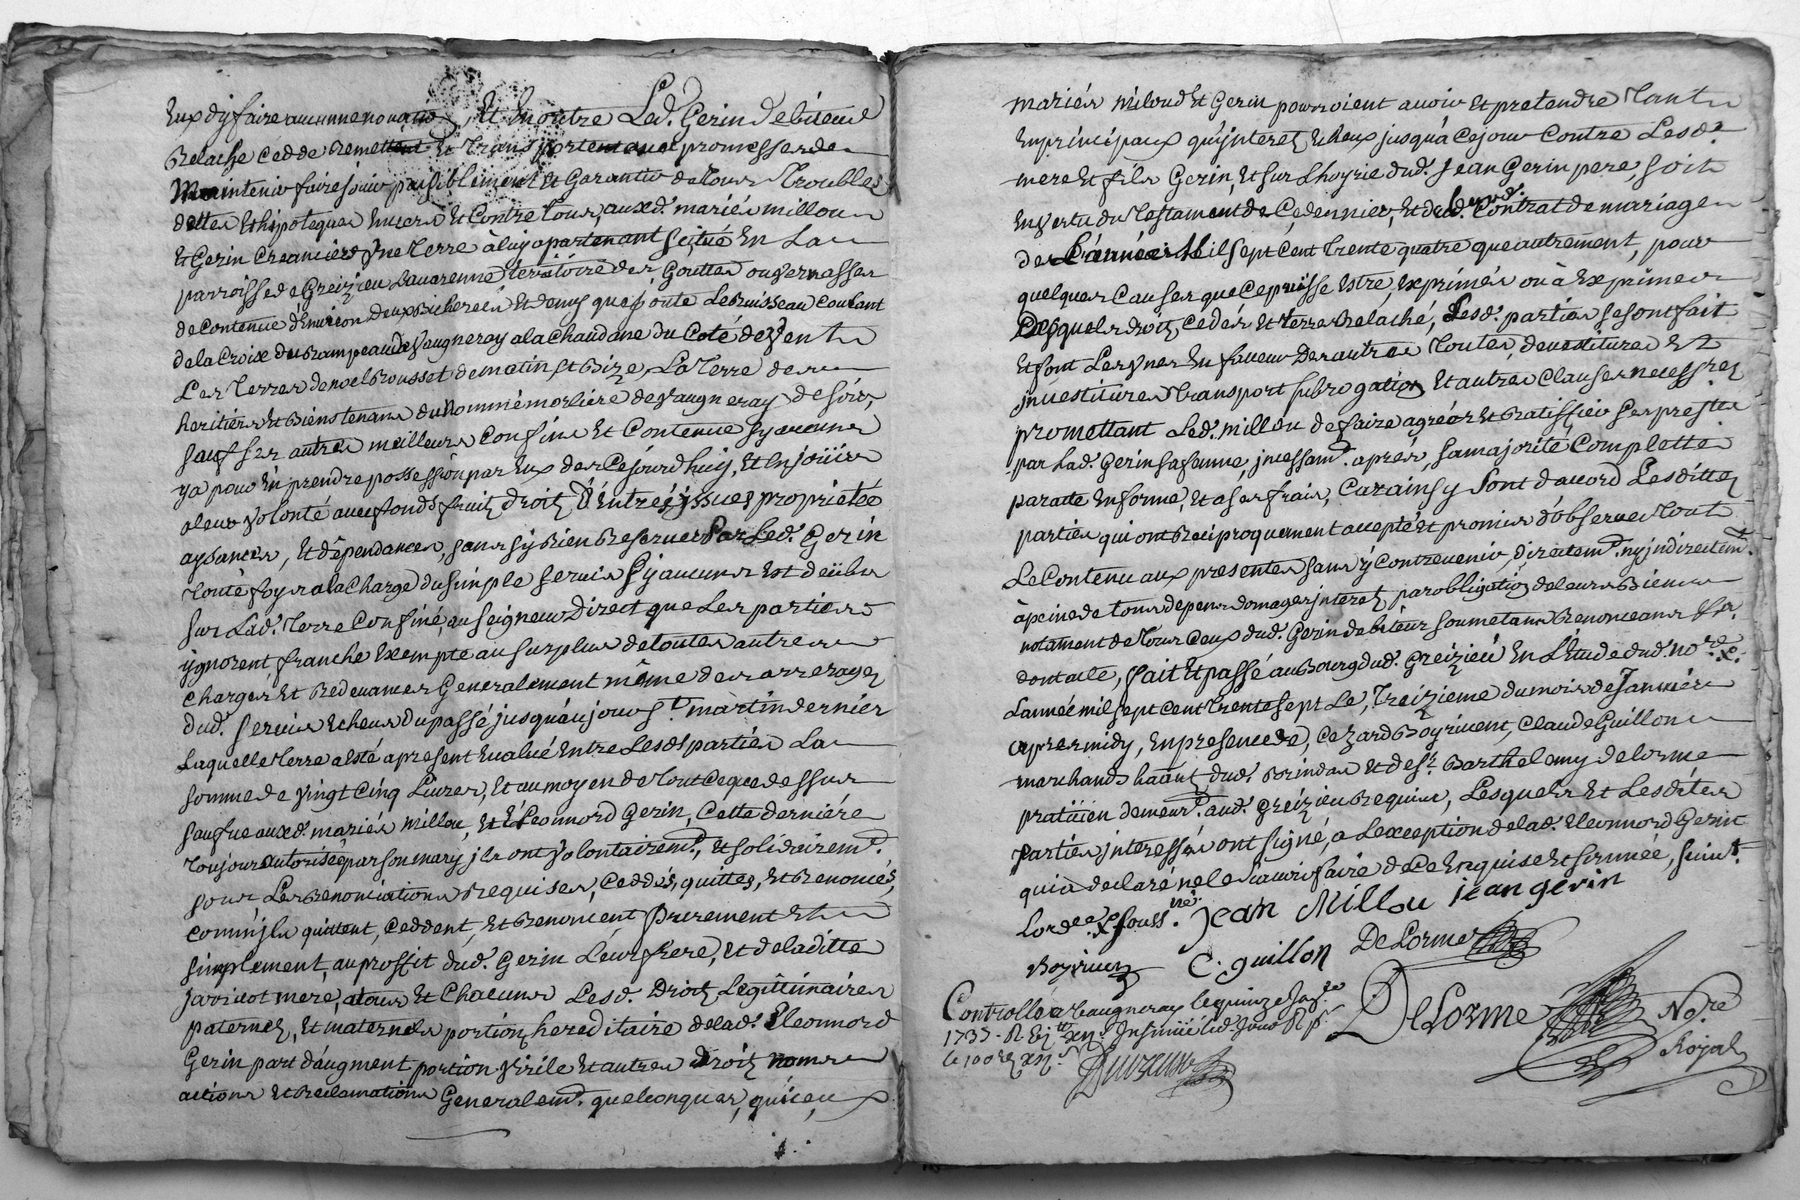 Eux d'y faire aucunne novation, Et En outre Led. Gerin debiteur
Relache cedde Remettent et Transportent avec promesses de
Maintenir faire jouir paisiblement et Garantir de tous Troubles
dettes Et hipoteques Envers et Contre tous, auxd. mariés millou
Et Gerin Creanciers Une terre à luy apartenant scitué En La
parroisse de Greizieu Lavarenne, territoire des Gouttes ou
de Contenue d'Environ deux Bicherées Et demy que joute Le Ruisseau Coulant
de la Croix du Rampeau de Vaugneray a la Chaudane du Coté de Vent
Les Terres de noel Rousset de matin Et Bize, La Terre des
heritiers et Bienstenans du Nommé morliere de Vaugneray de soir,
sauf ses autres meilleurs Confins Et Contenue sy aucuns
ya pour En prendre possession par Eux des Cejourdhuy, Et En joüir
a leur Volonté avec fonds fruits droits D'Entrées issues proprietés
aysances, Et dépendances, sans sy Rien Reserver Par Led. Gerin
Toutefoys a la Charge du simple servis sy aucuns Est deüb
sur Lad. Terre Confiné, au seigneur Direct que Les parties
ygnorent franche Exempte au surplus de toutes autres
Charges Et Redevances Generalement même des arrerages
dud. servis Echeus du passé jusqu'au jour St. martin dernier
Laquelle Terre a Esté a present Evalué Entre Lesd. parties La
somme de Vingt Cinq Livres, Et au moyen de Tout Ceque dessus
sauf ue auxd. mariés Millou, Et Eleonnord Gerin, Cette derniére
Toujours autorisée par son mary ils ont Volontairemt., Et solidairemt.
sous Les Renonciations Requises, Ceddés, quittés, Et Renoncés,
comm'ils quittent, Ceddent, Et Renoncent, Purement Et
simplement, au proffit dud. Gerin Leur frere, Et de laditte
Javricot mere, a tous Et Chacuns Lesd. Droits Legitimaires
paternels, Et maternels portion hereditaire de lad. Eleonnord
Gerin part d'augment portion Virile Et autres Droits noms
actions Et Reclamations Generalemt. quelconques, qu'iceux
mariés Miloud Et Gerin pourroient avoir Et pretendre Tant
En principaux qu'interets Echeux jusqu'a Cejour Contre Lesd.
mere Et fils Gerin, Et sur L'hoyrie dud. Jean Gerin pere, soit
En vertu du Testament de Cedernier, Et dud. Contrat de mariage
de L'année Mil sept Cent Trente quatre que autrement, pour
quelques Causes que Ce puisse Estre, Exprimés ou à Exprimer
Desquels droits Cedés Et terre Relaché, Lesd. parties se sont fait
Et font Les Unes En faveur Des autres Toutes, devestitures Et
investitures Transport subrogation Et autres Clauses necessres
promettant Led. Millou de faire agréer Et Ratiffier Ces prestes
par Lad. Gerin sa femme, incessamt. aprés, sa majorité Complette
par acte En forme, Et a ses frais, Car ainsy sont d'accord Lesdittes
parties qui ont Reciproquement accepté Et promis d'observer Tout
Le Contenu aux presentes sans y Contrevenir, directemt. ny indirectemt.
à peine de tous depens domages interets par obligation de leurs Biens
notament de Tous Ceux dud. Gerin debiteur soumetans Renonceans &a.
dont acte, fait Et passé au Bourg dud. Greizieu En L'Etude dud. nore. Rl.
L'année mil sept Cent Trente sept Le, Treizieme du mois de Janvier
apres midy, En presence de, Cezard Boyrivent, Claude Guillon
marchands habnt. dud. Brindas Et de sr. Barthelemy delorme
praticien demeurt. aud. Greizieu Requis, Lesquels Et Lesdites
Parties interessés ont signé, a L'exception de lad. Eleonnord Gerin
qui a declaré ne le scavoir faire de Ce Enquise Et sommée, suivt.
Lordce. Rl. souss.né. jean Millou jean gerin
Boyrivent C. guillon DeLorme
Controllé a Vaugneray le quinze Janer.
1737. R. Insinüé led. jour
DeLorme Nore
Royal